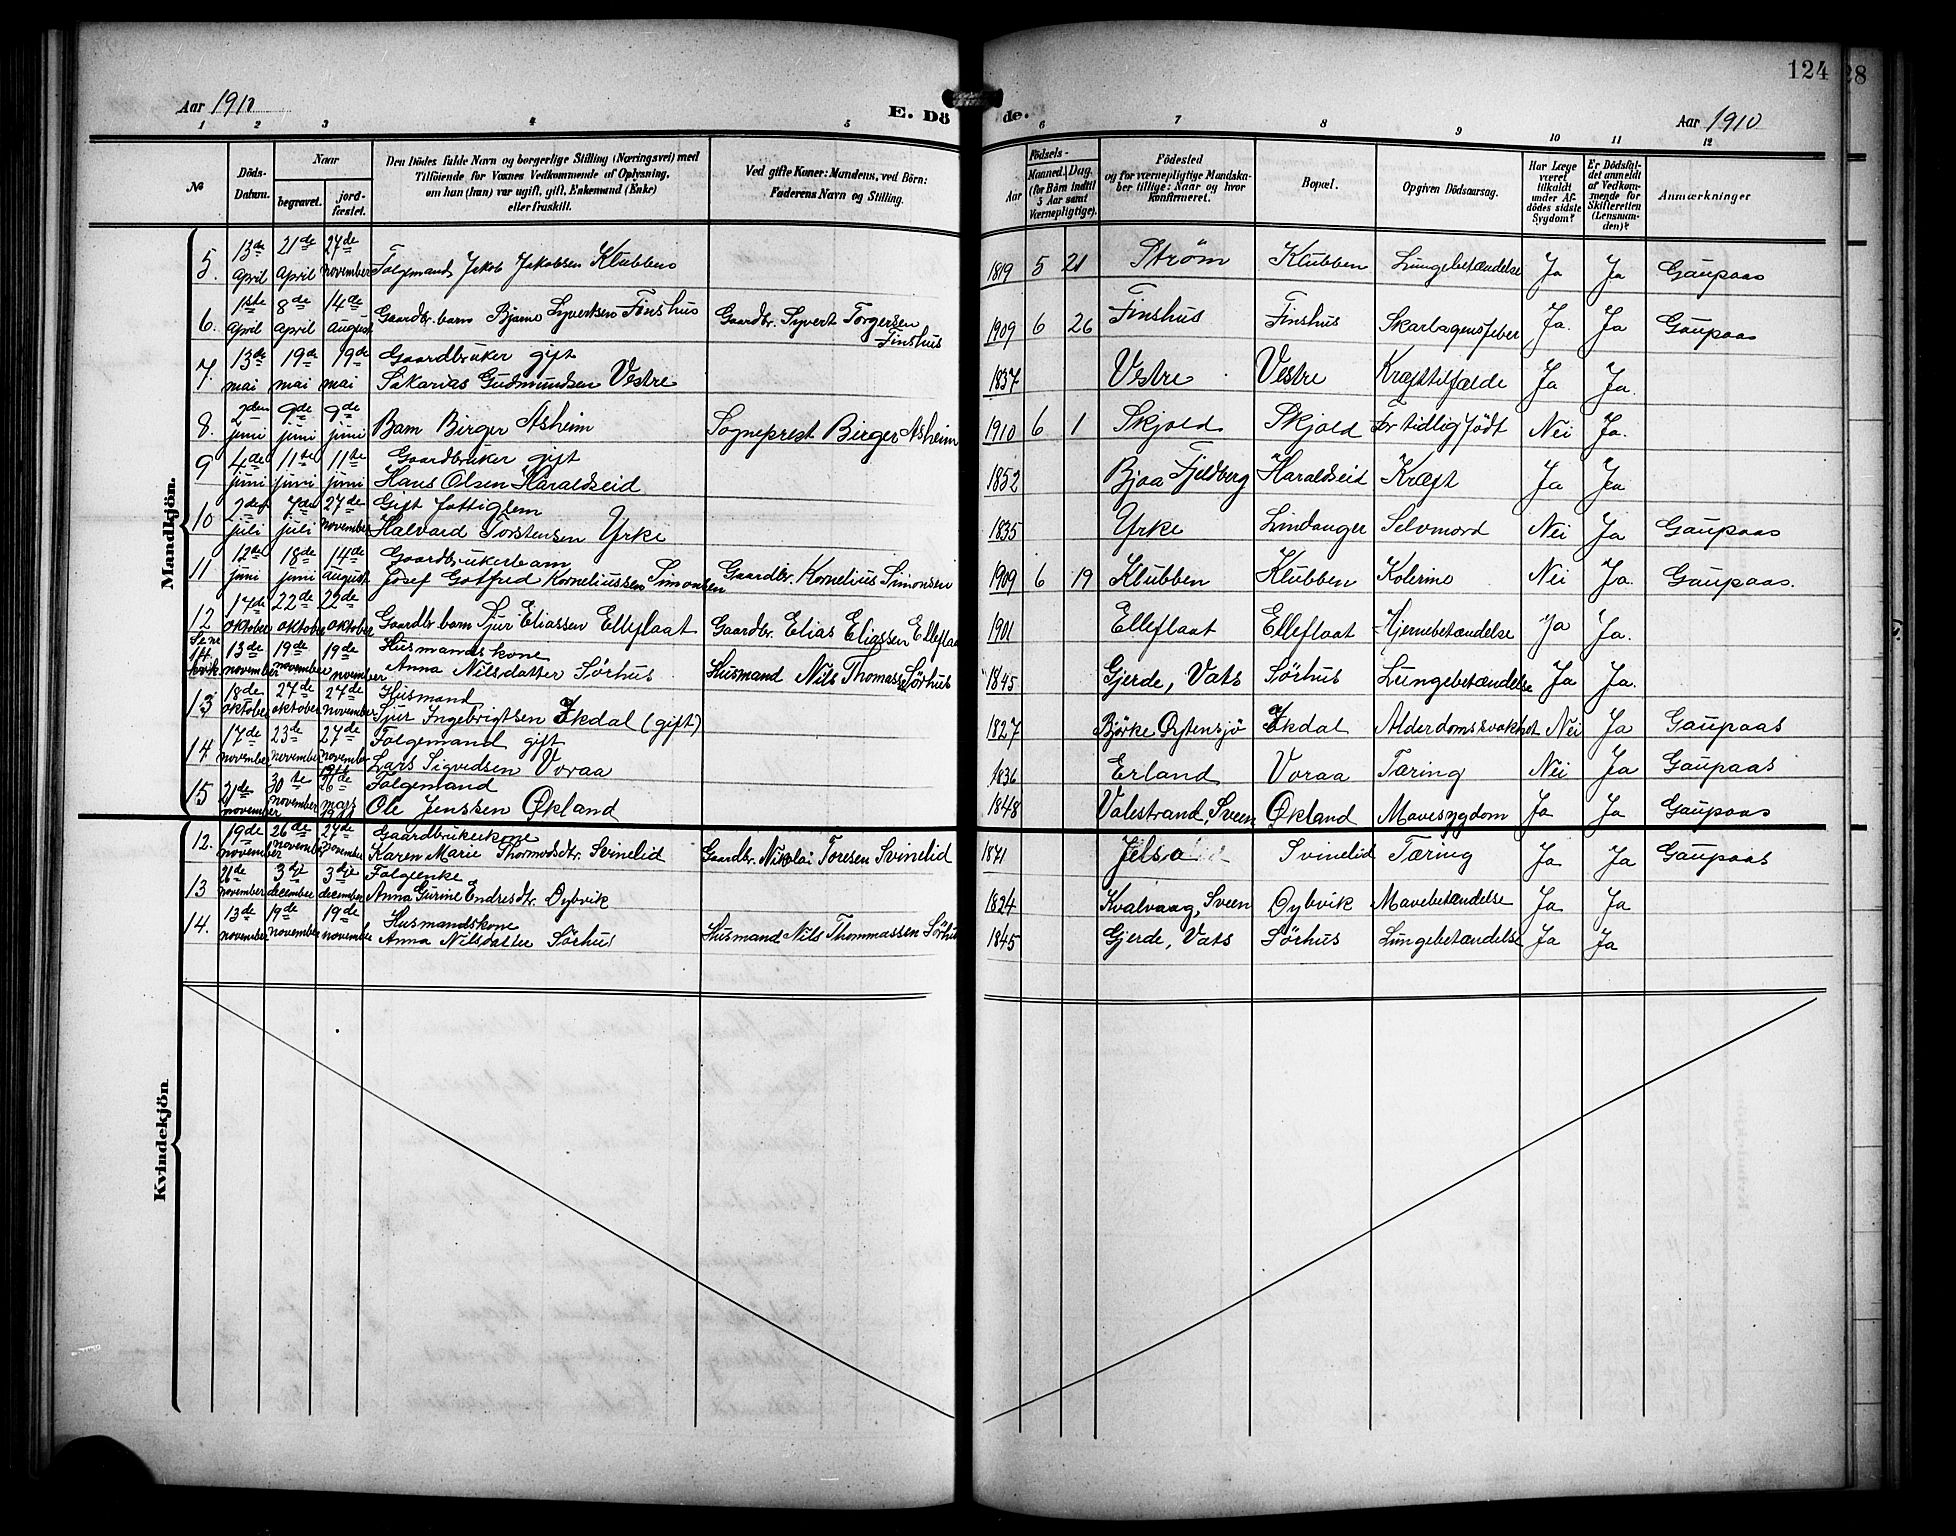 124
28
Aar 1910
E. Dö
de.
Aar 1910
1 2 3 4 5 6 7 8 9 10 11 12
No
Döds-Datum.
Naar
begravet.
jord-fæstet.
Den Dödes fulde Navn og borgerlige Stilling (Næringsvei) med
Tilföiende for Voxnes Vedkommende af Oplysning,
om hun (han) var ugift, gift, Enkemand (Enke)
eller fraskilt.
Ved gifte Koner: Mandens, ved Börn:
Faderens Navn og Stilling.
Födsels-
Aar
Maaned. Dag.
(for Börn indtil
5 Aar samt
Værnepligtige).
Födested
og for værnepligtige Mandska-
ber tillige: Naar og hvor
konfirmeret.
Bopæl.
Opgiven Dödsaarsag.
Har Læge
været
tilkaldt
under Af-
dödes sidste
Sygdom?
Er Dödsfal-
det anmeldt
af Vedkom-
mende for
Skifteretten
(Lensman-
den)?
Anmærkninger
Mandkjön.
5. 13de April 21de April 27de november Folgemand Jakob Jakobsen Klubben 1819 5 21 Strøm Klubben Lungebetændelse Ja Ja Gaupaas
6. 1ste April 8de April 14de August Gaardbr. barn Bjarne Syvertsen Finshus Gaardbr. Syvert Torgersen Finshus 1909 6 26 Finshus Finshus Skarlagensfeber Ja. Ja Gaupaas
7. 13de mai 19de mai 19de mai Gaardbruker gift
Sakarias Gudmundsen Vestre 1837 Vestre Vestre Kræfttilfælde Ja Ja.
8. 2den juni 9de juni 9de juni Barn Birger Asheim Sogneprest Birger Asheim 1910 6 1 Skjold Skjold For tidlig født Nei Ja.
9 4de juni 11te juni 11te juni Gaardbruker gift
Hans Olsen Haraldseid 1852 Bjoa Fjeldberg Haraldseid Kræft Ja Ja
10 2den juli 7de juli 27de november Gift fattiglem
Halvard Torstensen Yrke 1835 Yrke Lindanger Selvmord Nei Ja Gaupaas
11 12de juni 18de juni 14de august Gaardbrukerbarn
Josef Gotfred Korneliussen Simonsen Gaardbr. Kornelius Simonsen 1909 6 19 Klubben Klubben Kolerine Nei Ja. Gaupaas.
12 17de oktober 22de oktober 22de oktober Gaardbr. barn Sjur Eliassen Elleflaat Gaardbr. Elias Eliassen Elleflaat 1901 Elleflaat Elleflaat Hjernebetændelse Ja Ja.
Se nr 14. kvik. 13de november 19de november 19de november Husmandskone
Anna Nilsdatter Sørhus Husmand Nils Thomass. Sørhus 1845 Gjerde, Vats Sørhus Lungebetændelse Ja Ja.
13 18de oktober 24de oktober 27de november Husmand
Sjur Ingebrigtsen Ekdal (gift) 1827 Bjørke Ekdal Alderdomssvakhet Nei Ja Gaupaas
14 17de november 23de november 27de november Folgemand gift
Lars Sigvedsen Voraa 1836 Erland Voraa Tæring Nei Ja Gaupaas
15 21de november 30te november 26de mars 1911 Folgemand
Ole Jenssen Økland 1848 Valestrand, Sveen Økland Mavesygdom Ja Ja Gaupaas
Kvindekjön.
12. 19de november 26de november 27de november Gaardbrukerkone
Karen Marie Thormodsdtr. Svinelid Gaardbr. Nikolai Toresen Svinelid 1841 Jelsa Svinelid Tæring Ja Ja Gaupaas
13 26de november 3dje december 3dje december Folgeenke
Anna Gurine Endresdtr. Dybvik 1824 Kvalvaag, Sveen Dybvik Mavebetændelse Ja Ja
14. 13de november 19de november 19de november Husmandskone
Anna Nilsdatter Sørhus Husmand Nils Thommassen Sørhus 1845 Gjerde, Vats Sørhus Lungebetændelse Ja Ja